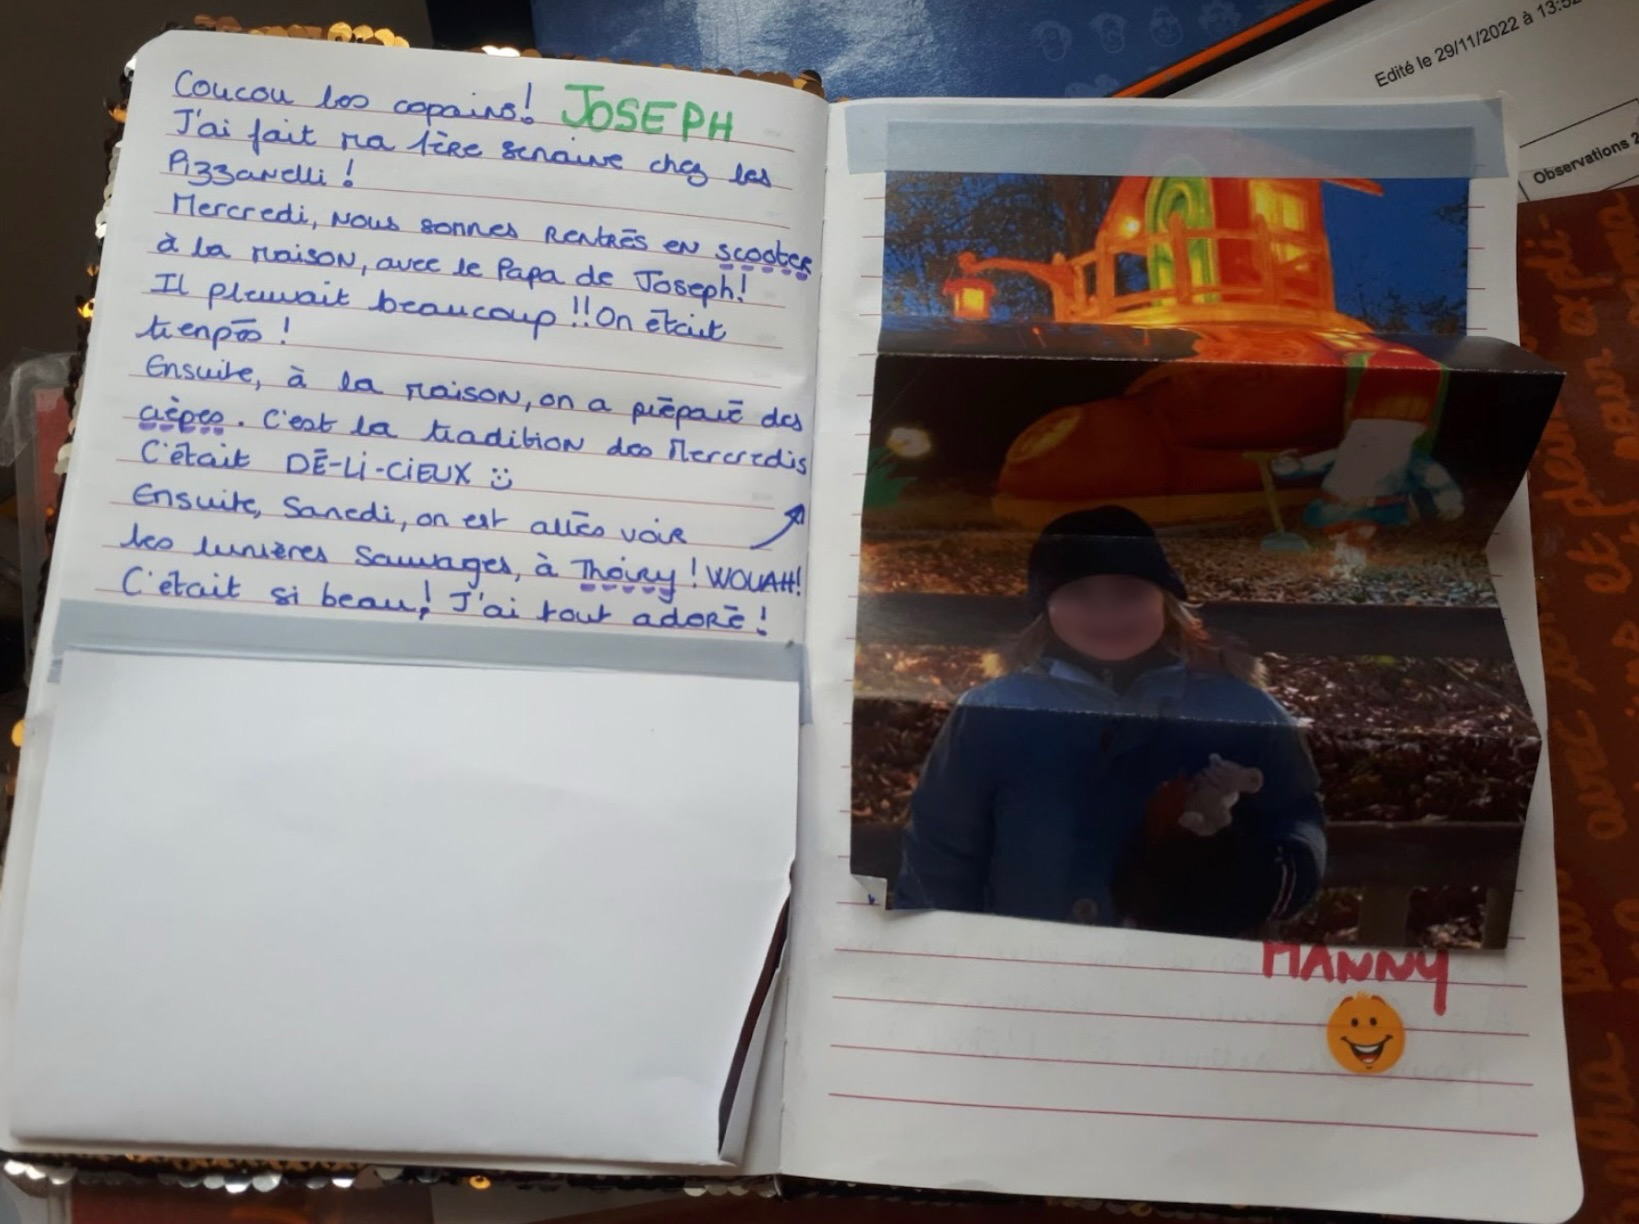 Coucou les copains! JOSEPH
J'ai fait ma 1ère semaine chez les
Pizzanelli !
Mercredi, nous sommes rentrés en scooter
à la maison, avec le Papa de Joseph!
Il pleuvait beaucoup !! On était
trempés !
Ensuite, à la maison, on a préparé des
crêpes. C'est la tradition des Mercredis
C'était DÉ-Li-CiEUX
Ensuite, Samedi, on est allés voir
les lumières Sauvages, à Thoiry ! WOUAH!
C'était si beau! J'ai tout adoré !
MANNY
Edité le 29/11/2022 à 13:52
Observations